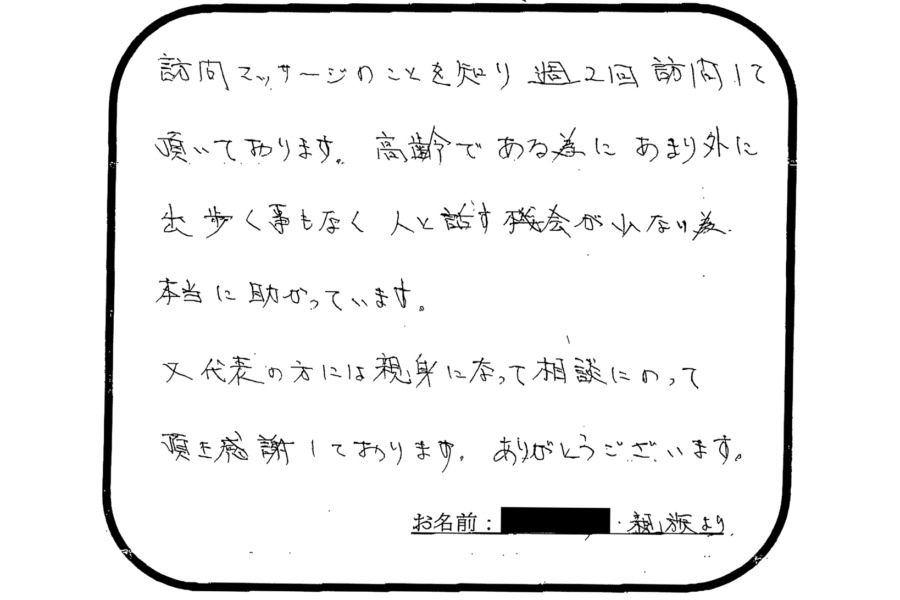 訪問マッサージのことを知り週2回訪問して
頂いております。高齢である為にあまり外に
出歩く事もなく人と話す機会が少ない為
本当に助かっています。
又代表の方には親身になって相談にのって
頂き感謝しております。ありがとうございます。
お名前：・親族より